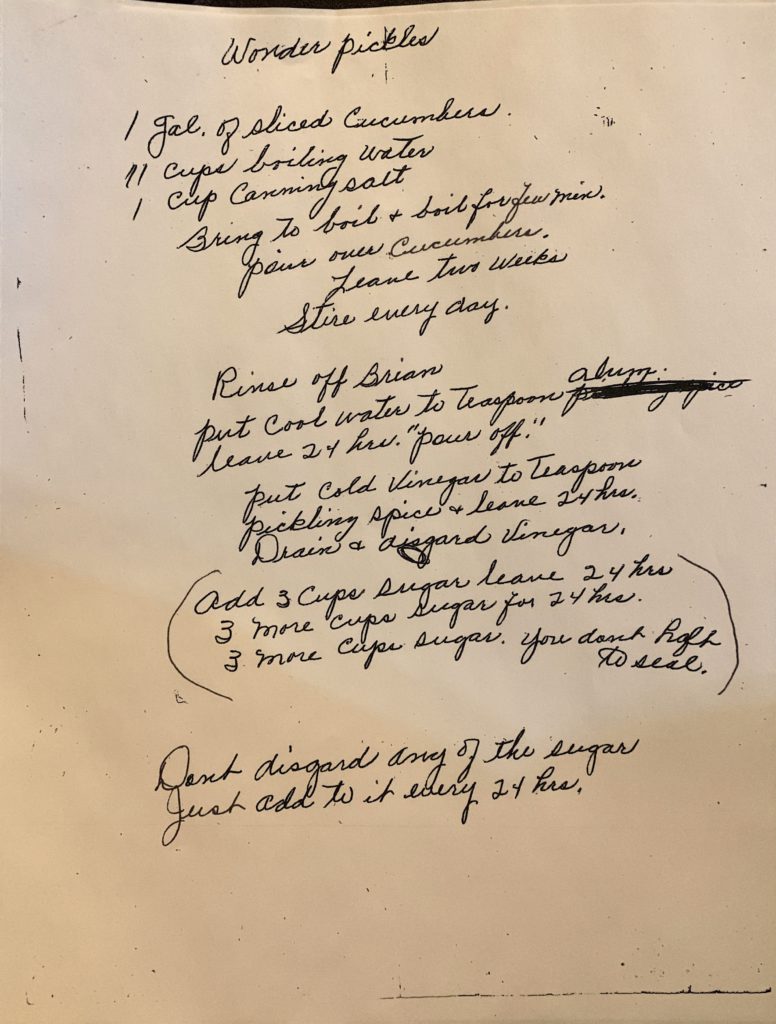 Wonder pickles
1 Gal. of sliced Cucumbers.
11 cups boiling water
1 Cup Canning salt
Bring to boil + boil for few min.
pour over Cucumbers.
Leave two weeks
Stire every day.
Rinse off Brian
put Cool water to Teaspoon alum.
leave 24 hrs. "pour off."
put cold vinegar to Teaspoon
pickling spice + leave 24 hrs.
Drain + disgard vinegar.
(Add 3 Cups sugar leave 24 hrs
3 more cups sugar for 24 hrs.
3 more cups sugar. You dont haft
to seal.)
Dont disgard any of the sugar
Just add to it every 24 hrs.